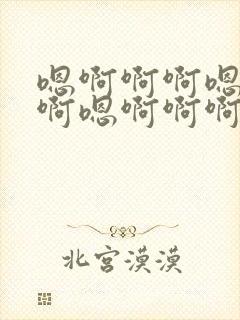 嗯啊啊啊嗯
啊嗯啊啊啊
北宫漠漠